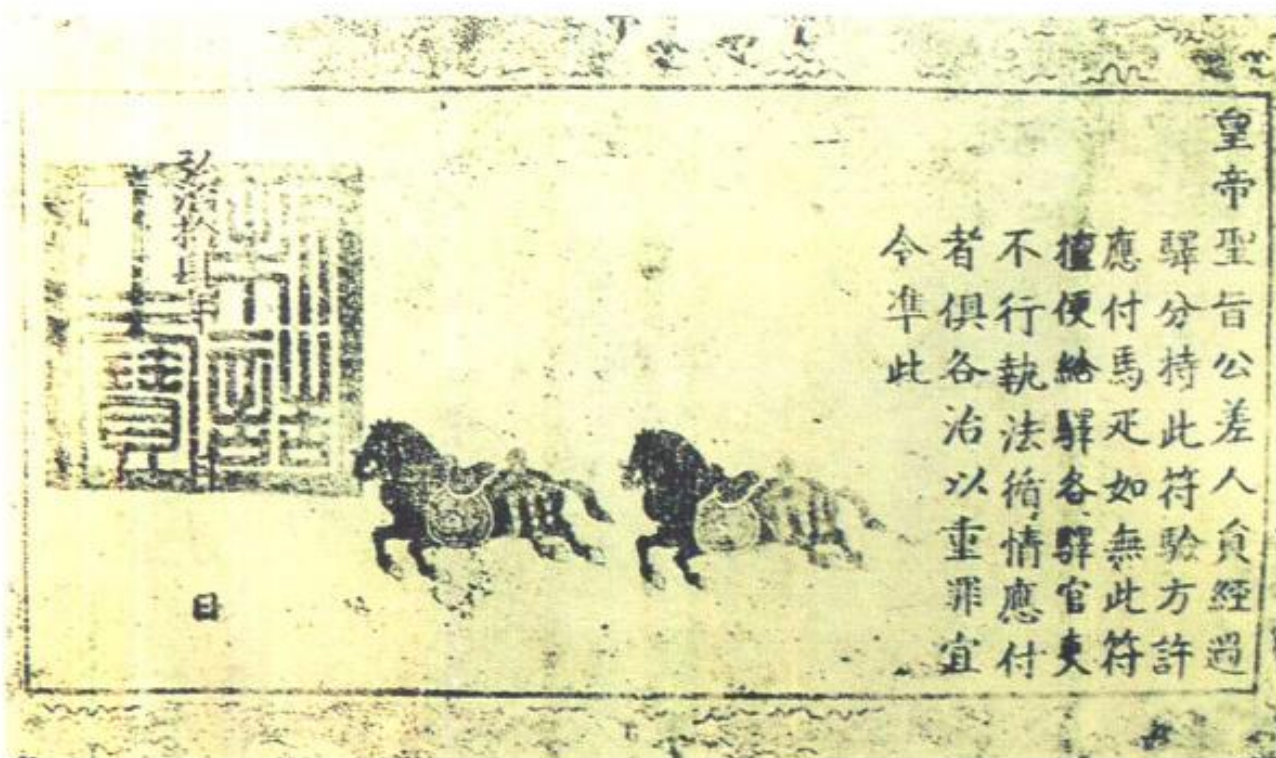 皇帝聖旨公差人貟經過
驛分持此符驗方許
應付馬疋如無此符
擅便給驛各驛官吏
不行執法循情應付
者俱各治以重罪宜
令準此
弘治拾
日